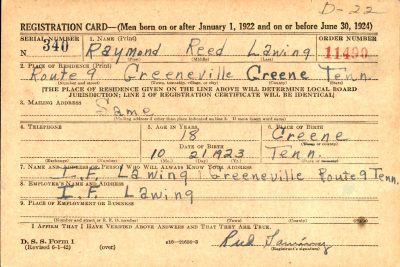 D-22
REGISTRATION CARD—(Men born on or after January 1, 1922 and on or before June 30, 1924)
SERIAL NUMBER 1. NAME (Print) ORDER NUMBER
340 Raymond Reed Lawing 11490
(First) (Middle) (Last)
2. PLACE OF RESIDENCE (Print)
Route 9 Greeneville Greene Tenn.
(Number and street) (Town, township, village, or city) (County) (State)
[THE PLACE OF RESIDENCE GIVEN ON THE LINE ABOVE WILL DETERMINE LOCAL BOARD
JURISDICTION; LINE 2 OF REGISTRATION CERTIFICATE WILL BE IDENTICAL]
3. MAILING ADDRESS
Same
(Mailing address if other than place indicated on line 2. If same insert word same)
4. TELEPHONE 5. AGE IN YEARS 6. PLACE OF BIRTH
18 Greene
DATE OF BIRTH (Town or county)
10 2 1923 Tenn.
(Exchange) (Number) (Mo.) (Day) (Yr.) (State or country)
7. NAME AND ADDRESS OF PERSON WHO WILL ALWAYS KNOW YOUR ADDRESS
I. F. Lawing Greeneville Route 9 Tenn.
8. EMPLOYER'S NAME AND ADDRESS
I. F. Lawing
9. PLACE OF EMPLOYMENT OR BUSINESS
(Number and street or R. F. D. number) (Town) (County) (State)
I AFFIRM THAT I HAVE VERIFIED ABOVE ANSWERS AND THAT THEY ARE TRUE.
D. S. S. Form 1
(Revised 6-1-42) (over) (Registrant's signature)